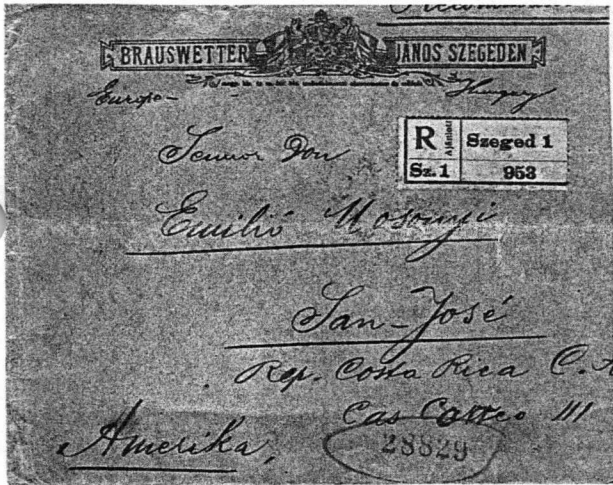 BRAUSWETTER JÁNOS SZEGEDEN
Europa- Hungary
R Ajánlott Szeged 1
Sz. 1 953
Sennor Don
Emilió Mosonyi
San-José
Rep. Costa Rica C.
Cas Correo 111
Amerika,
28829